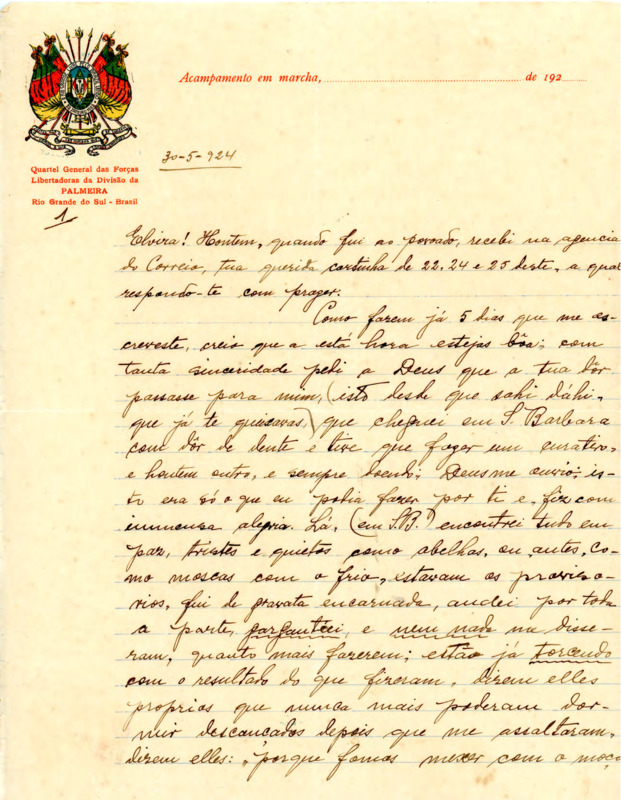 Acampamento em marcha, de 192
30-5-924
Quartel General das Forças
Libertadoras da Divisão da
PALMEIRA
Rio Grande do Sul - Brasil
1
Elvira! Hontem, quando fui ao povoado, recebi na agencia
do Correio, tua querida cartinha de 22, 24 e 25 deste, a qual
respondo-te com prazer.
Como fazem já 5 dias que me es-
creveste, creio que a esta hora estejas bôa; com
tanta sinceridade pedi a Deus que a tua dôr
passasse para mim, (isto desde que sahi dáhi,
que já te queixavas,) que cheguei em S. Barbara
com dôr de dente e tive que fazer um curativo,
e hontem outro, e sempre doendo; Deus me ouvio; is-
to era só o que eu podia fazer por ti e fiz com
immensa alegria. Lá, (em S.B.) encontrei tudo em
paz, tristes e quietos como abelhas, ou antes, co-
mo moscas com o frio, estavam os proviso-
rios, fui de gravata encarnada, andei por toda
a parte, gargantiei, e nem nada me disse-
ram, quanto mais fazerem; estão já torcendo
com o resultado do que fizeram, dizem elles
proprios que nunca mais poderam dor-
mir descançados depois que me assaltaram,
dizem elles: "porque fomos mexer com o moço